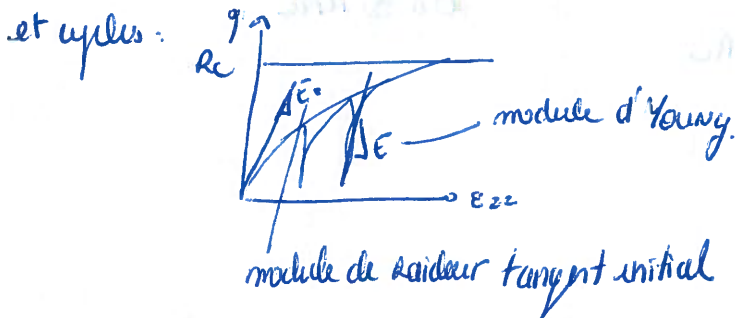 et cycles :
q
Rc
E₀
module d'YOUNG.
E
ε22
module de raideur tangent initial